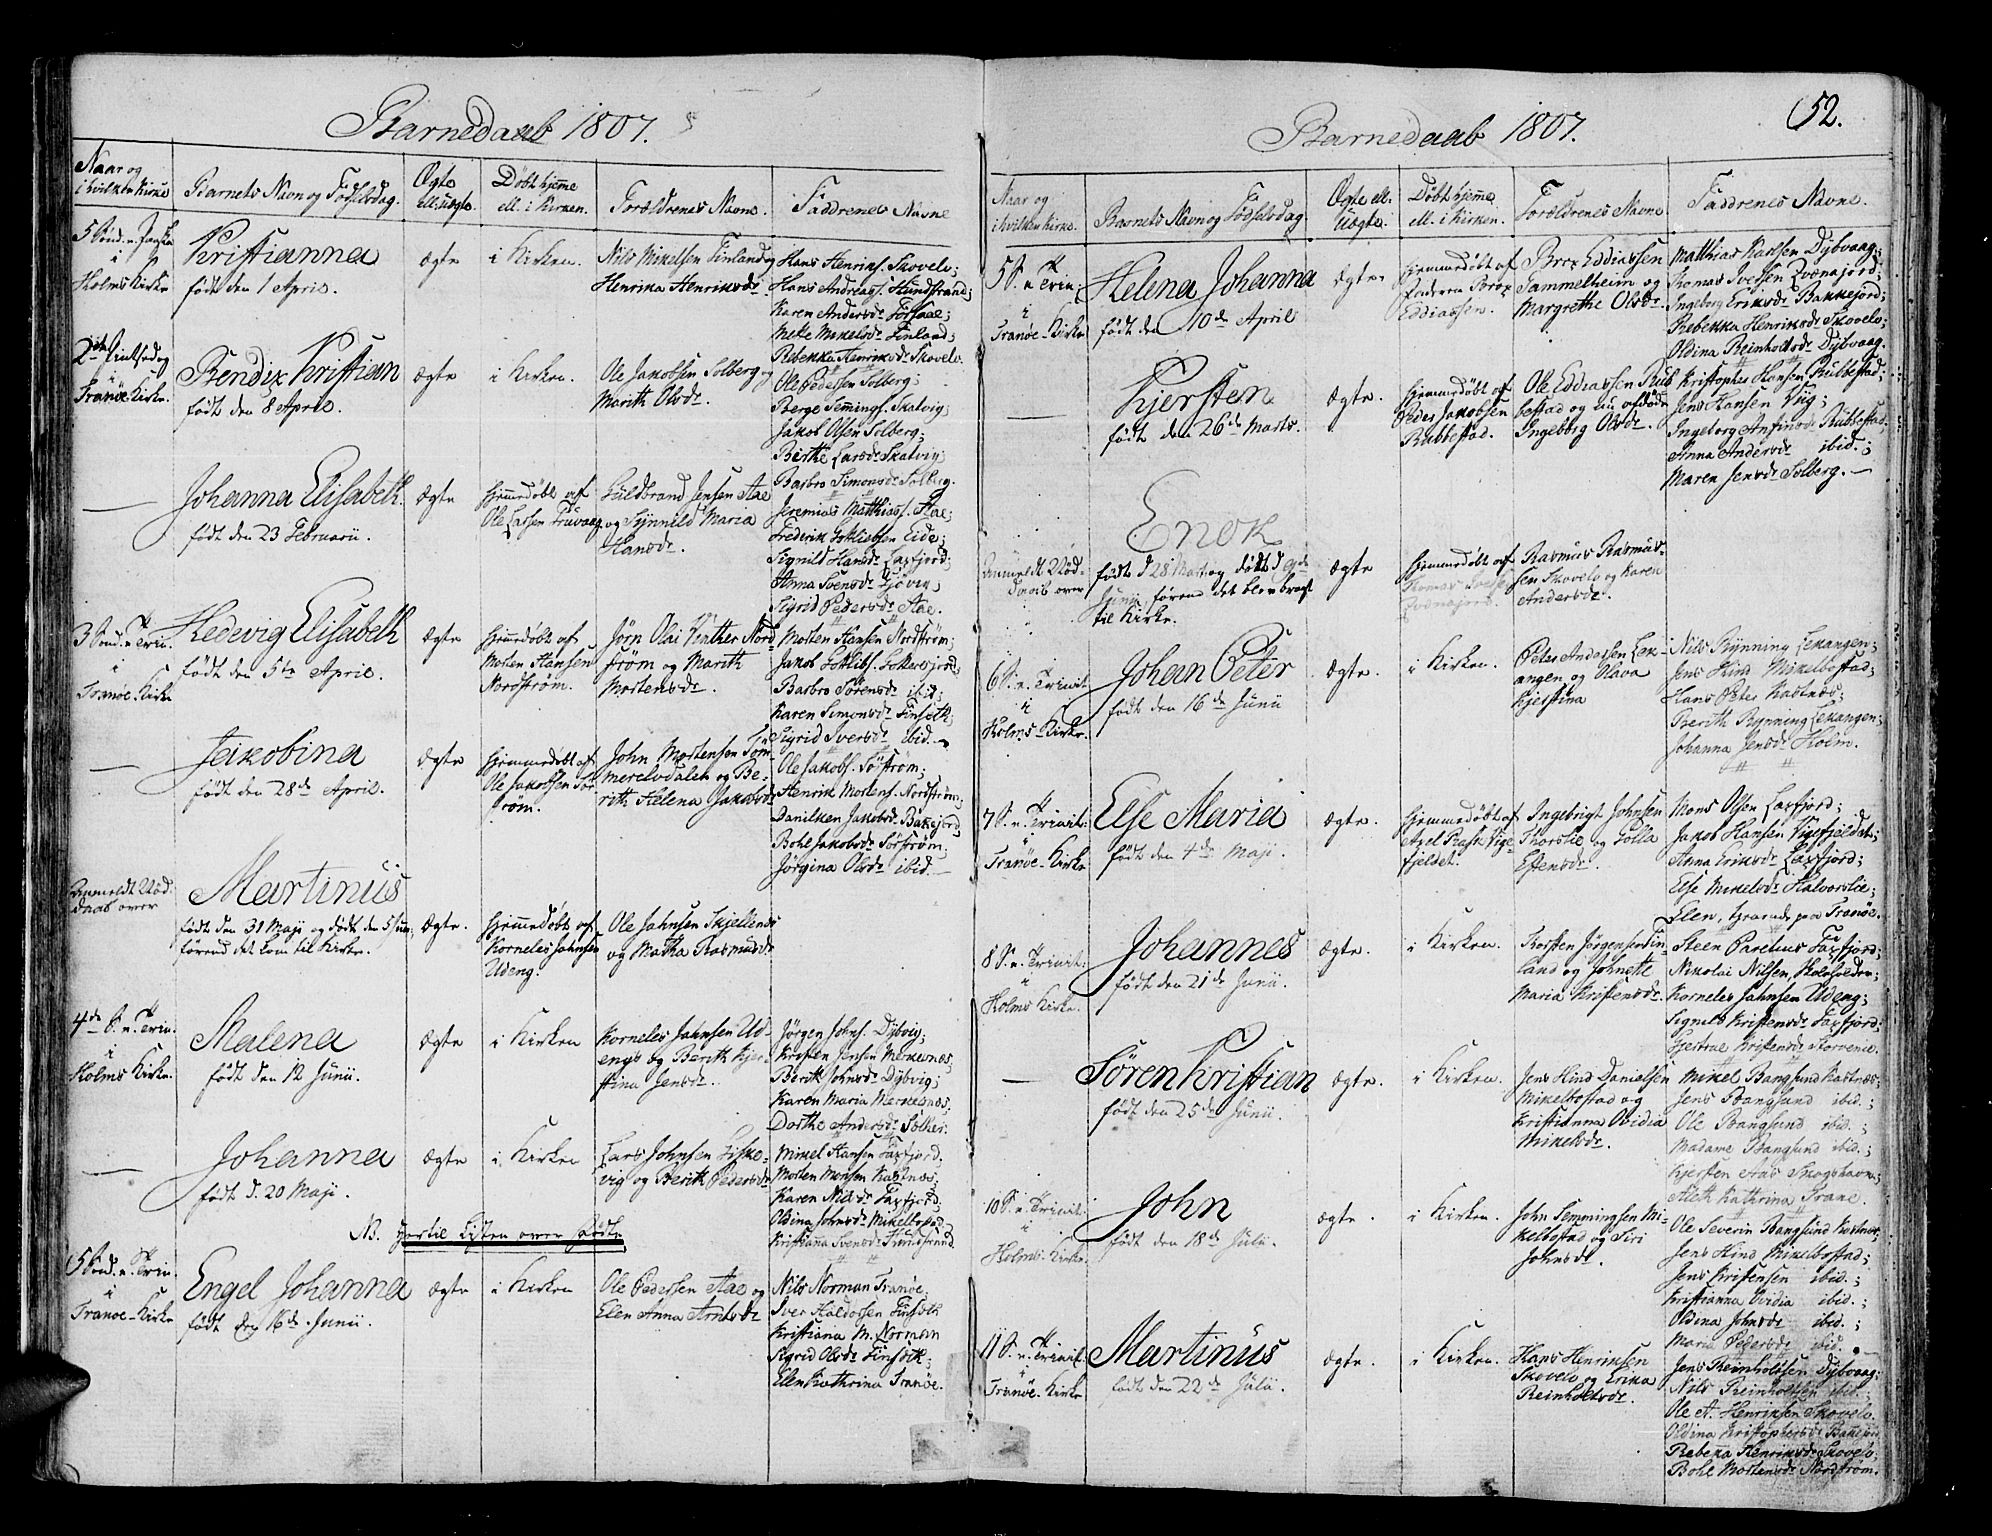 Barnedaab 1807.
Naar og
i hvilken Kirke
Barnets Navn og Fødselsdag.
Ægte
ell. uægte.
Døbt hjemme
ell. i Kirken.
Forældrenes Navne.
Faddrenes Navne
5 Sønd. e. Paaske
i
Holms Kirke
Kristianna
født den 1 April.
ægte
i Kirken.
Nils Mikelsen Finland og
Henrika Henriksdr.
Hans Henriks. Skovelv;
Hans Andreass. Hundstrand;
Karen Andersdr. Forsaae;
Mette Mikelsdr. Finland;
Rebekka Henriksdr. Skovelv.
2den Pintsedag
i
Tranøe-Kirke.
Bendix Kristian
født den 8 April.
ægte
i Kirken.
Ole Jakobsen Solberg og
Marith Olsdr.
Ole Pedersen Solberg;
Berge Semings. Skatvig;
Jakob Olsen Solberg;
Birthe Larsdr. Skatvig;
Barbro Simonsdr. Solberg.
—
Johanna Elisabeth
født den 23 Februarii.
Ægte
hjemmedøbt af
Ole Larsen Truvaag
Guldbrand Jensen Aae
og Synnild Maria
Hansdr.
Jeremias Matthiass. Aae;
Frederik Gotliebsen Eide;
Signild Hansdr. Laxfjord;
Anna Svensdr. Gjøvig;
Sigrid Pedersdr. Aae.
3 Sønd. e. Trin.
i
Tranøe-Kirke
Hedevig Elisabeth
født den 5te April.
Ægte
hjemmedøbt af
Morten Hansen
Nordstrøm.
Jørn Olai Winther Nord
strøm og Marith
Mortensdr.
Morten Hansen Nordstrøm;
Jakob Gotlibs.
Barbro Sørensdr. ibid.;
Karen Simonsdr. Finsæth;
Sigrid Iversdr. ibid.
—
Jakobina
født den 28de April.
ægte
hjemmedøbt af
Ole Jakobsen Sør
strøm.
John Mortensen Søm
merelvdalen og Be-
rith Helena Jakobsdr.
Ole Jakobs. Sørstrøm;
Henrik Mortens. Nordstrøm;
Danilken Jakobsdr. Bakkejord;
Bohl Jakobsdr. Sørstrøm;
Jørgina Olsdr. ibid. —
Anmeldt Nød-
daab over
Martinus
født den 31 Maji og døde den 5 Jun.
førend det kom til Kirke.
Ægte.
hjemmedøbt af
Korneles Jahnsen
Udeng.
Ole Jahnsen Skjellenes
og Matha Rasmusdr.
4de S. e. Trin.
i
Holms Kirke.
Malena
født den 12 Junii.
ægte
i Kirken
Korneles Jahnsen Ud-
engs og Berith Kjer-
stina Jensdr.
Jørgen Johns. Dybvig;
Kristen Jensen Merkenæs,
Berith Johnsdr. Dybvig;
Karen Maria Merkenæs,
Dorthe Andersdr. Solker.
—
Johanna
født d. 20 Maji.
ægte
i Kirken
Lars Johnsen Giske-
vig og Berith Pedersdr
Mikel Hansen Faxfjord;
Morten Monsen Kastnæs;
Karen Nilsdr. Faxfjord;
Oldina Johnsdr. Mikelbostad
Kristianna Svensdr. Hundstrand.
NB. Hertil Listen over fødte
5 Sønd. e. Trin.
i
Tranøe-Kirke
Engel Johanna
født den 16de Junii.
ægte
i Kirken
Ole Pedersen Aae og
Ellen Anna Arntsdr
Nils Norman Tranøe;
Iver Haldorsen Finsæth
Kristiana M. Norman
Sigrid Olsdr. Finsæth;
Ellen Kathrina Tranøe.
52.
Barnedaab 1807.
Naar og
i hvilken Kirke.
Barnets Navn og Fødselsdag
Ægte ell.
Uægte.
Døbt hjemme
ell. i Kirken.
Forældrenes Navne
Faddrenes Navne.
5 S. e. Trin.
i
Tranøe-Kirke
Helena Johanna
født den 10de April
Ægte-
hjemmedøbt af
Faderen Brox
Eddiassen.
Brox Eddiassen
Tammelheim og
Margrethe Olsdr.
Matthias Karlsen Dybvaag;
Thomas Iversen Evenajord;
Ingeborg Eriksdr. Bakkejord;
Rebekka Henriksdr. Skovelv;
Oldina Reinholtsdr. Dybvaag.
—
Kjersten
født den 26de Marts.
Ægte.
hjemmedøbt af
Peder Jakobsen
Rubbestad.
Ole Eddiassen Rub
bestad og nu afdøde
Ingeborg Olsdr.
Kristopher Hansen Rubbestad;
Jens Hansen Vug;
Ingeborg Anfinsdr. Rubbestad.
Anna Andersdr. ibid.;
Maren Jensdr. Solberg. —
Anmeldt Nød-
daab over
Enok
født d. 28 Mart. og døde d. 9de
Junii, førend det blev bragt
til Kirke.
Ægte
hjemmedøbt af
Rasmus Rasmus-
sen Skovelv og Karen
Andersdr.
6 S. e. Trinit.
i
Holms-Kirke.
Johan Peter
født den 16de Junii
Ægte.
i Kirken.
Peter Andersen Lex-
angen og Olava
Kjerstina
Nils Rynning Lexangen;
Jens Hind Mikelbostad;
Hans Peter Kastnæs;
Berith Rynning Lexangen;
Johanna Jensdr. Holm.
7 S. e. Trinit.
i
Tranøe-Kirke
Else Maria
født den 4de Maji.
ægte.
hjemmedøbt af
Axel Prask Vige-
fjeldet.
Ingebrigt Johnsen
Thorske og Golla
Effensdr.
Mons Olsen Laxfjord;
Jakob Hansen Vigefjeldet;
Anna Eriksdr. Laxfjord;
Else Mikelsdr. Halvorslie;
Elen, tjenende paa Tranøe.
8 S. e. Trinit.
i
Holms Kirke.
Johannes
født den 21de Junii.
Ægte.
i Kirken.
Torsten Jørgensen Fin
land og Johnette
Maria Kristensdr.
Steen Parelius Faxfjord;
Nikolai Nilsen,
Korneles Jahnsen Udeng;
Signils Kristensdr. Faxfjord;
Gjertrue Kristensdr. Storvenie.
—
Søren Kristian
født den 25de Junii.
ægte.
i Kirken.
Jens Hind Danielsen
Mikelbostad og
Kristianna Ovidia
Mikelsdr.
Mikel Bangsund Kastnæs;
Jens Bangsund ibid.;
Ole Bangsund ibid.;
Madame Bangsund ibid.;
Kjersten Aas Skogshavn;
Aleth Kathrina Trane.
10 S. e. Trinit.
i
Holms-Kirke.
John
født den 18de Julii.
ægte.
i Kirken.
John Semmingsen Mi-
kelbostad og Siri
Johnsdr.
Ole Severin Bangsund Kastnæs;
Jens Hind Mikelbostad;
Jens Kristensen ibid.;
Kristianna Ovidia ibid.;
Oldina Johnsdr. ibid.;
Maria Pedersdr. ibid. —
11 S. e. Trinit.
i
Tranøe-Kirke
Martinus
født den 22de Julii.
ægte.
i Kirken.
Hans Henriksen
Skovelv og Erika
Reinholtsdr.
Jens Reinholdsen Dybvaag;
Nils Reinholdsen ibid.
Ole A. Henriksen Skovelv.
Oldina Kristophersdr. Bakkejord
Rebeka Henriksdr. Skovelv,
Bohl Mortensdr. Nordstrøm.